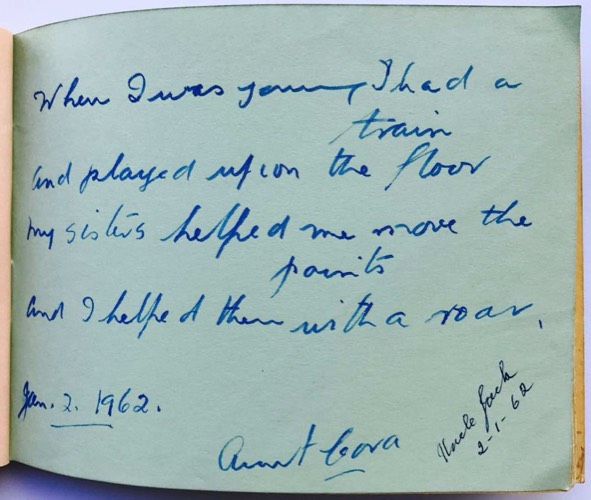 When I was young I had a
train
and played upon the floor
my sisters helped me move the
points
and I helped them with a roar,
Jan. 2. 1962.
Aunt Cora
Uncle Jack
2-1-62